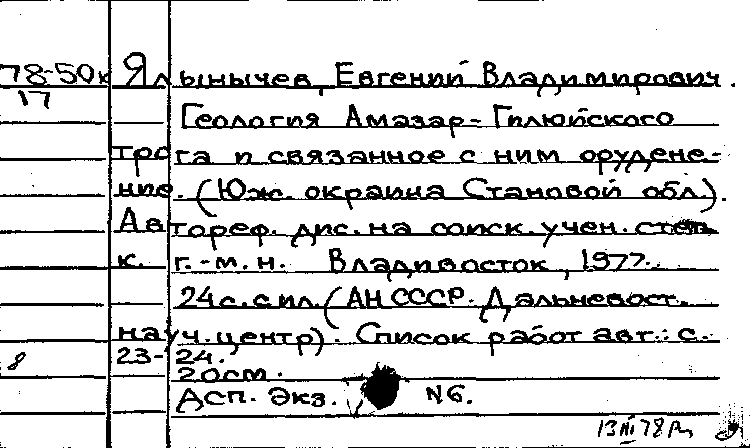 78-50к Ялынычев, Евгений Владимирович.
17
Геология Амазар-Гилюйского
трога и связанное с ним орудене-
ние. (Юж. окраина Становой обл).
Автореф. дис. на соиск. учен. степ.
к. г.-м. н. Владивосток, 1977.
24 с. с ил. (АН СССР. Дальневост.
науч. центр). Список работ авт.: с.
23-24.
8
20см.
Асп. Экз. N6.
13 III 78